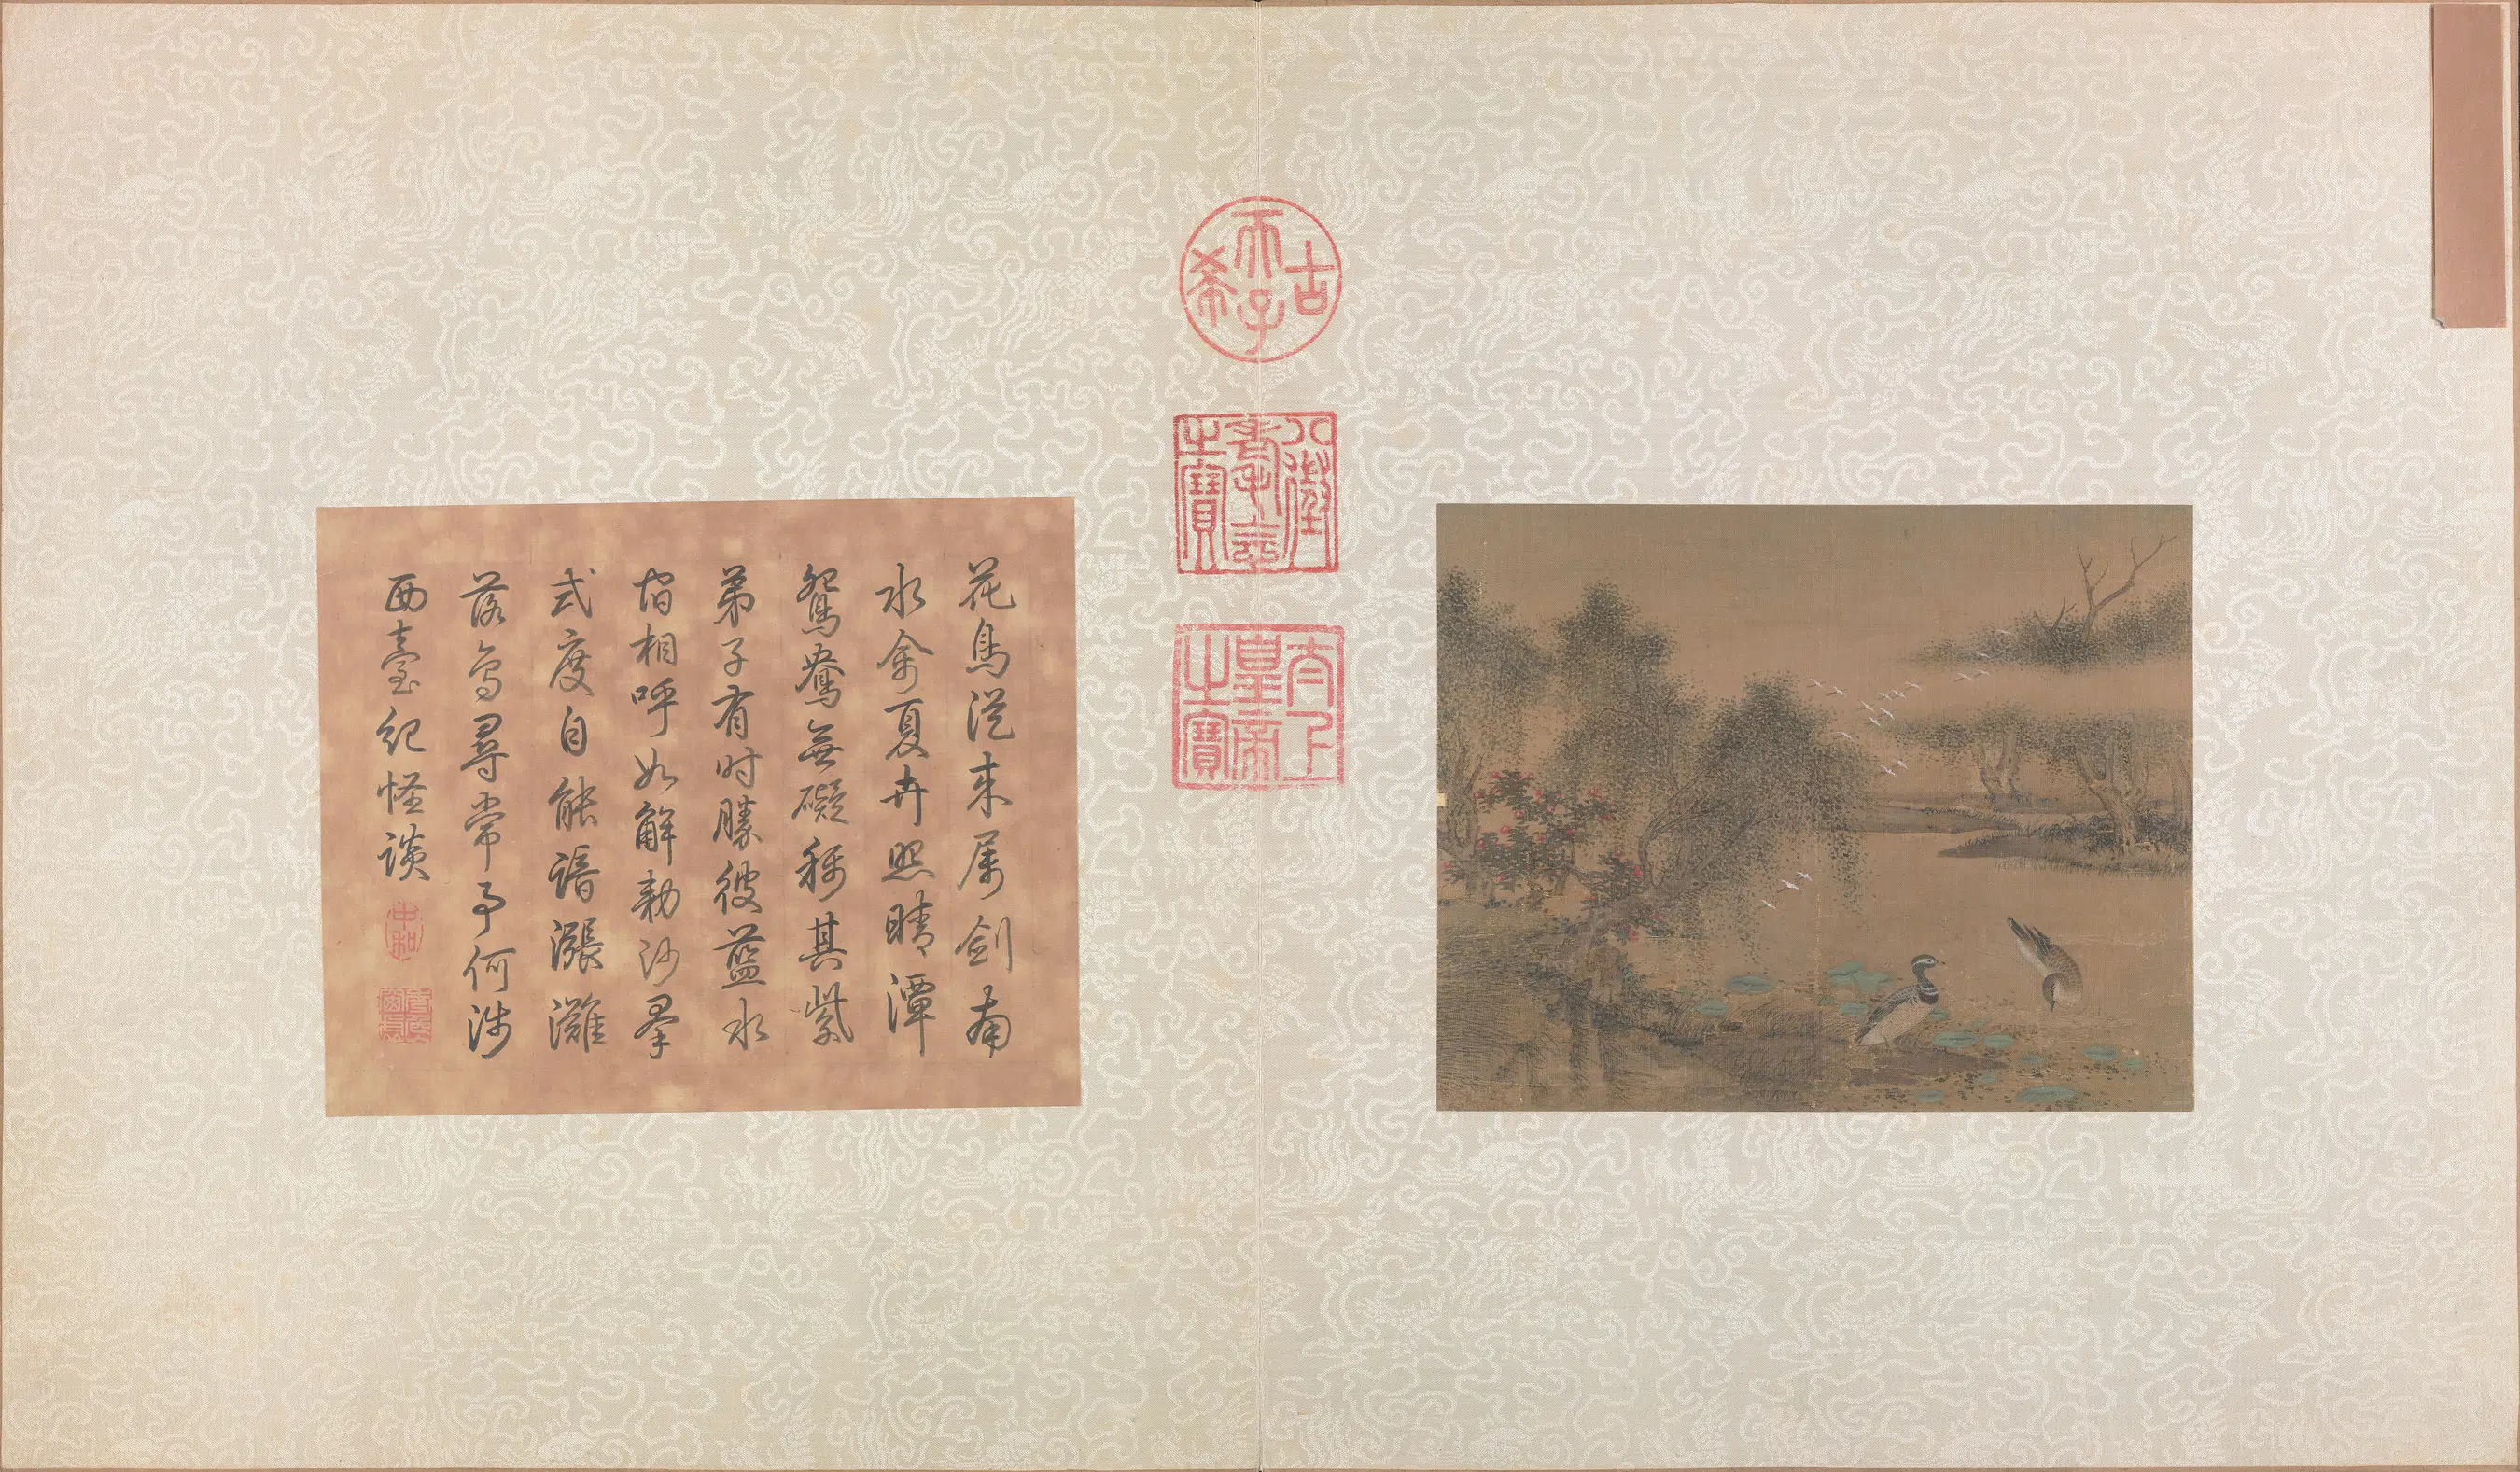 古希天子
八徵耄念之寶
太上皇帝之寶
花鳥從来屬劍南
水禽夏卉照晴潭
鴛鴦無礙稱其紫
弟子有时勝彼藍水
宿相呼如解勅沙羣
式度自能諳漲灘
落為尋常事何涉
西臺紀怪談
中和